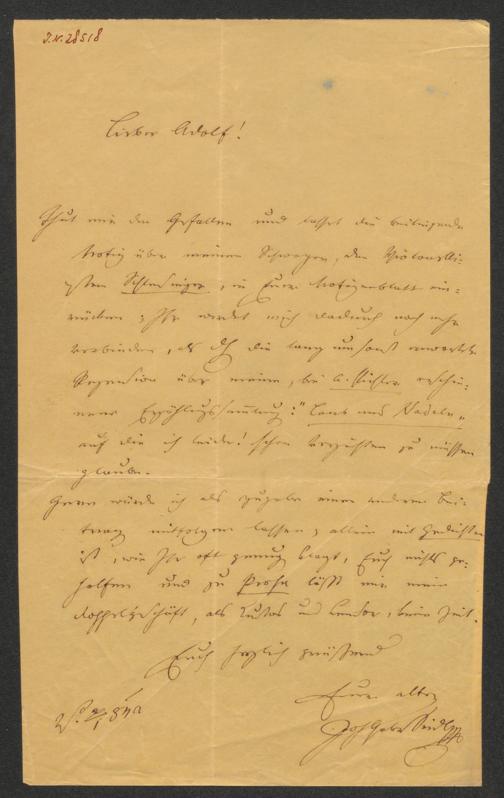 J.N. 28518
Lieber Adolf!
Thut mir den Gefallen und lasset die beiliegende
Notiz über meinen Schwager, den Violoncelli-
sten Schlesinger, in Eurem Notizenblatt ein-
rücken; Ihr werdet mich dadurch noch mehr
verbinden, als durch die lang umsonst erwartete
Rezension über meine, bei A. Pichler erschie-
nene Erzählungssammlung: "Laub und Nadeln"
auf die ich leider! schon verzichten zu müssen
glaube.
Gerne würde ich als Zugabe einen anderen Bei-
trag mitfolgen lassen; allein mit Gedichten
ist, wie Ihr oft genug klagt, Euch nichts ge-
holfen und zu Prosa läßt mir mein
Doppelgeschäft, als Custos und Censor, keine Zeit.
Euch herzlich grüßend
Euer alter
Joh Gabr Seidl